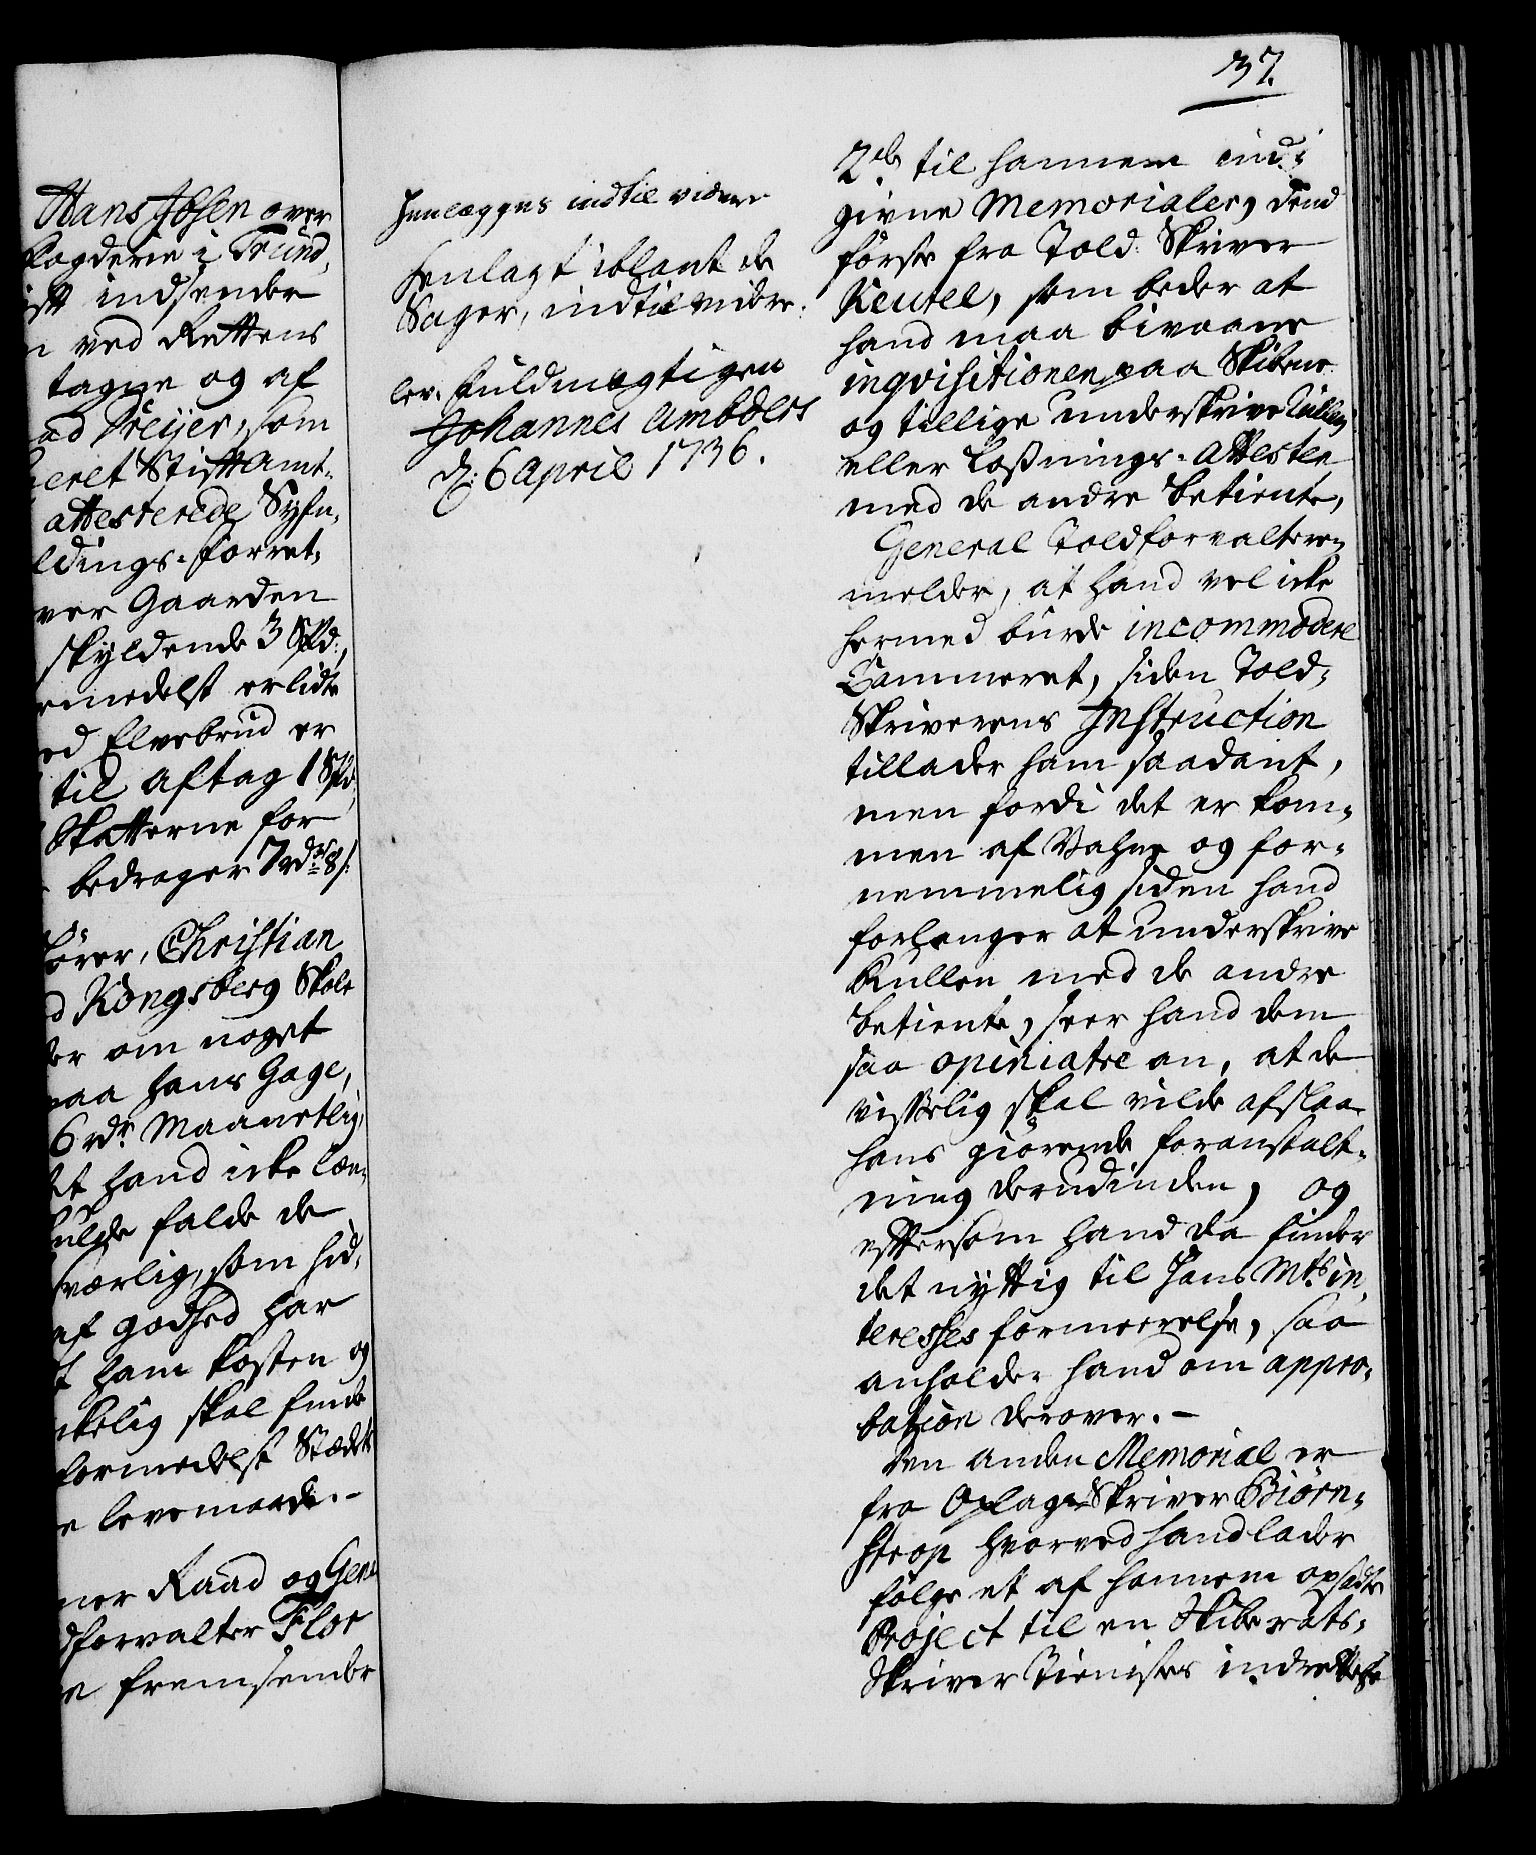 37.
Hans Ibsen over
Fogderie i Trund,
indsender
ved Rettens
tagne og af
Dreyer, som
Stiftamt-
attesterede Syfn,
ldings-forret,
ver Gaarden
skyldende 3 Spd:,
medelst erlidte
Elvebrud er
til aftag 1 Spd,
Skatterne for
bedrager 7 rdr 8 s:
hører, Christian
Kongsberg Skole
om noget
paa hans Gage,
6 rdr Maanetlig,
at hand icke læn,
falde de
værlig, som hid,
af godhed har
ham kosten og
skal finde
formedelst Stædets
levemaade.-
Raad og Gene
dforvalter Flor
fremsender
Henlægges indtil videre
henlagt iblant de
Sager, indtil videre.
lev. Fuldmegtigen
Johannes Amböers
d: 6 April 1736.
2de til hannem ind-
givne Memorialer, dend
förste fra Told-Skriver
Keutel, som beder at
hand maa bivaane
inqvisitionen paa Skibene
og tillige underskrive Rullen
eller Losnings-Attesten
med de andre betiente,
General Toldforvalteren
melder, at hand vel icke
hermed burde incommodere
Cammeret, siden Told-
Skriverens Instruction
tillader ham saadant,
men fordi det er kom-
men af Vahne og for-
nemmelig siden hand
forlanger at underskrive
Rullen med de andre
betiente, seer hand dem
saa opiniatre an, at de
visselig skal vilde afslaae
hans giörende foranstalt-
ning derudinden, og
eftersom hand da finder
det nyttig til Hans Mts in,
teresses formeerelse, saa
anholder hand om appro-
bation derover.-
Den anden Memorial er
fra Oplags Skriver Biørn-
strop hvorved hand lader
følge et af hannem opsadte
Project til en Skiberats-
Skriver Tienistes indrettelse